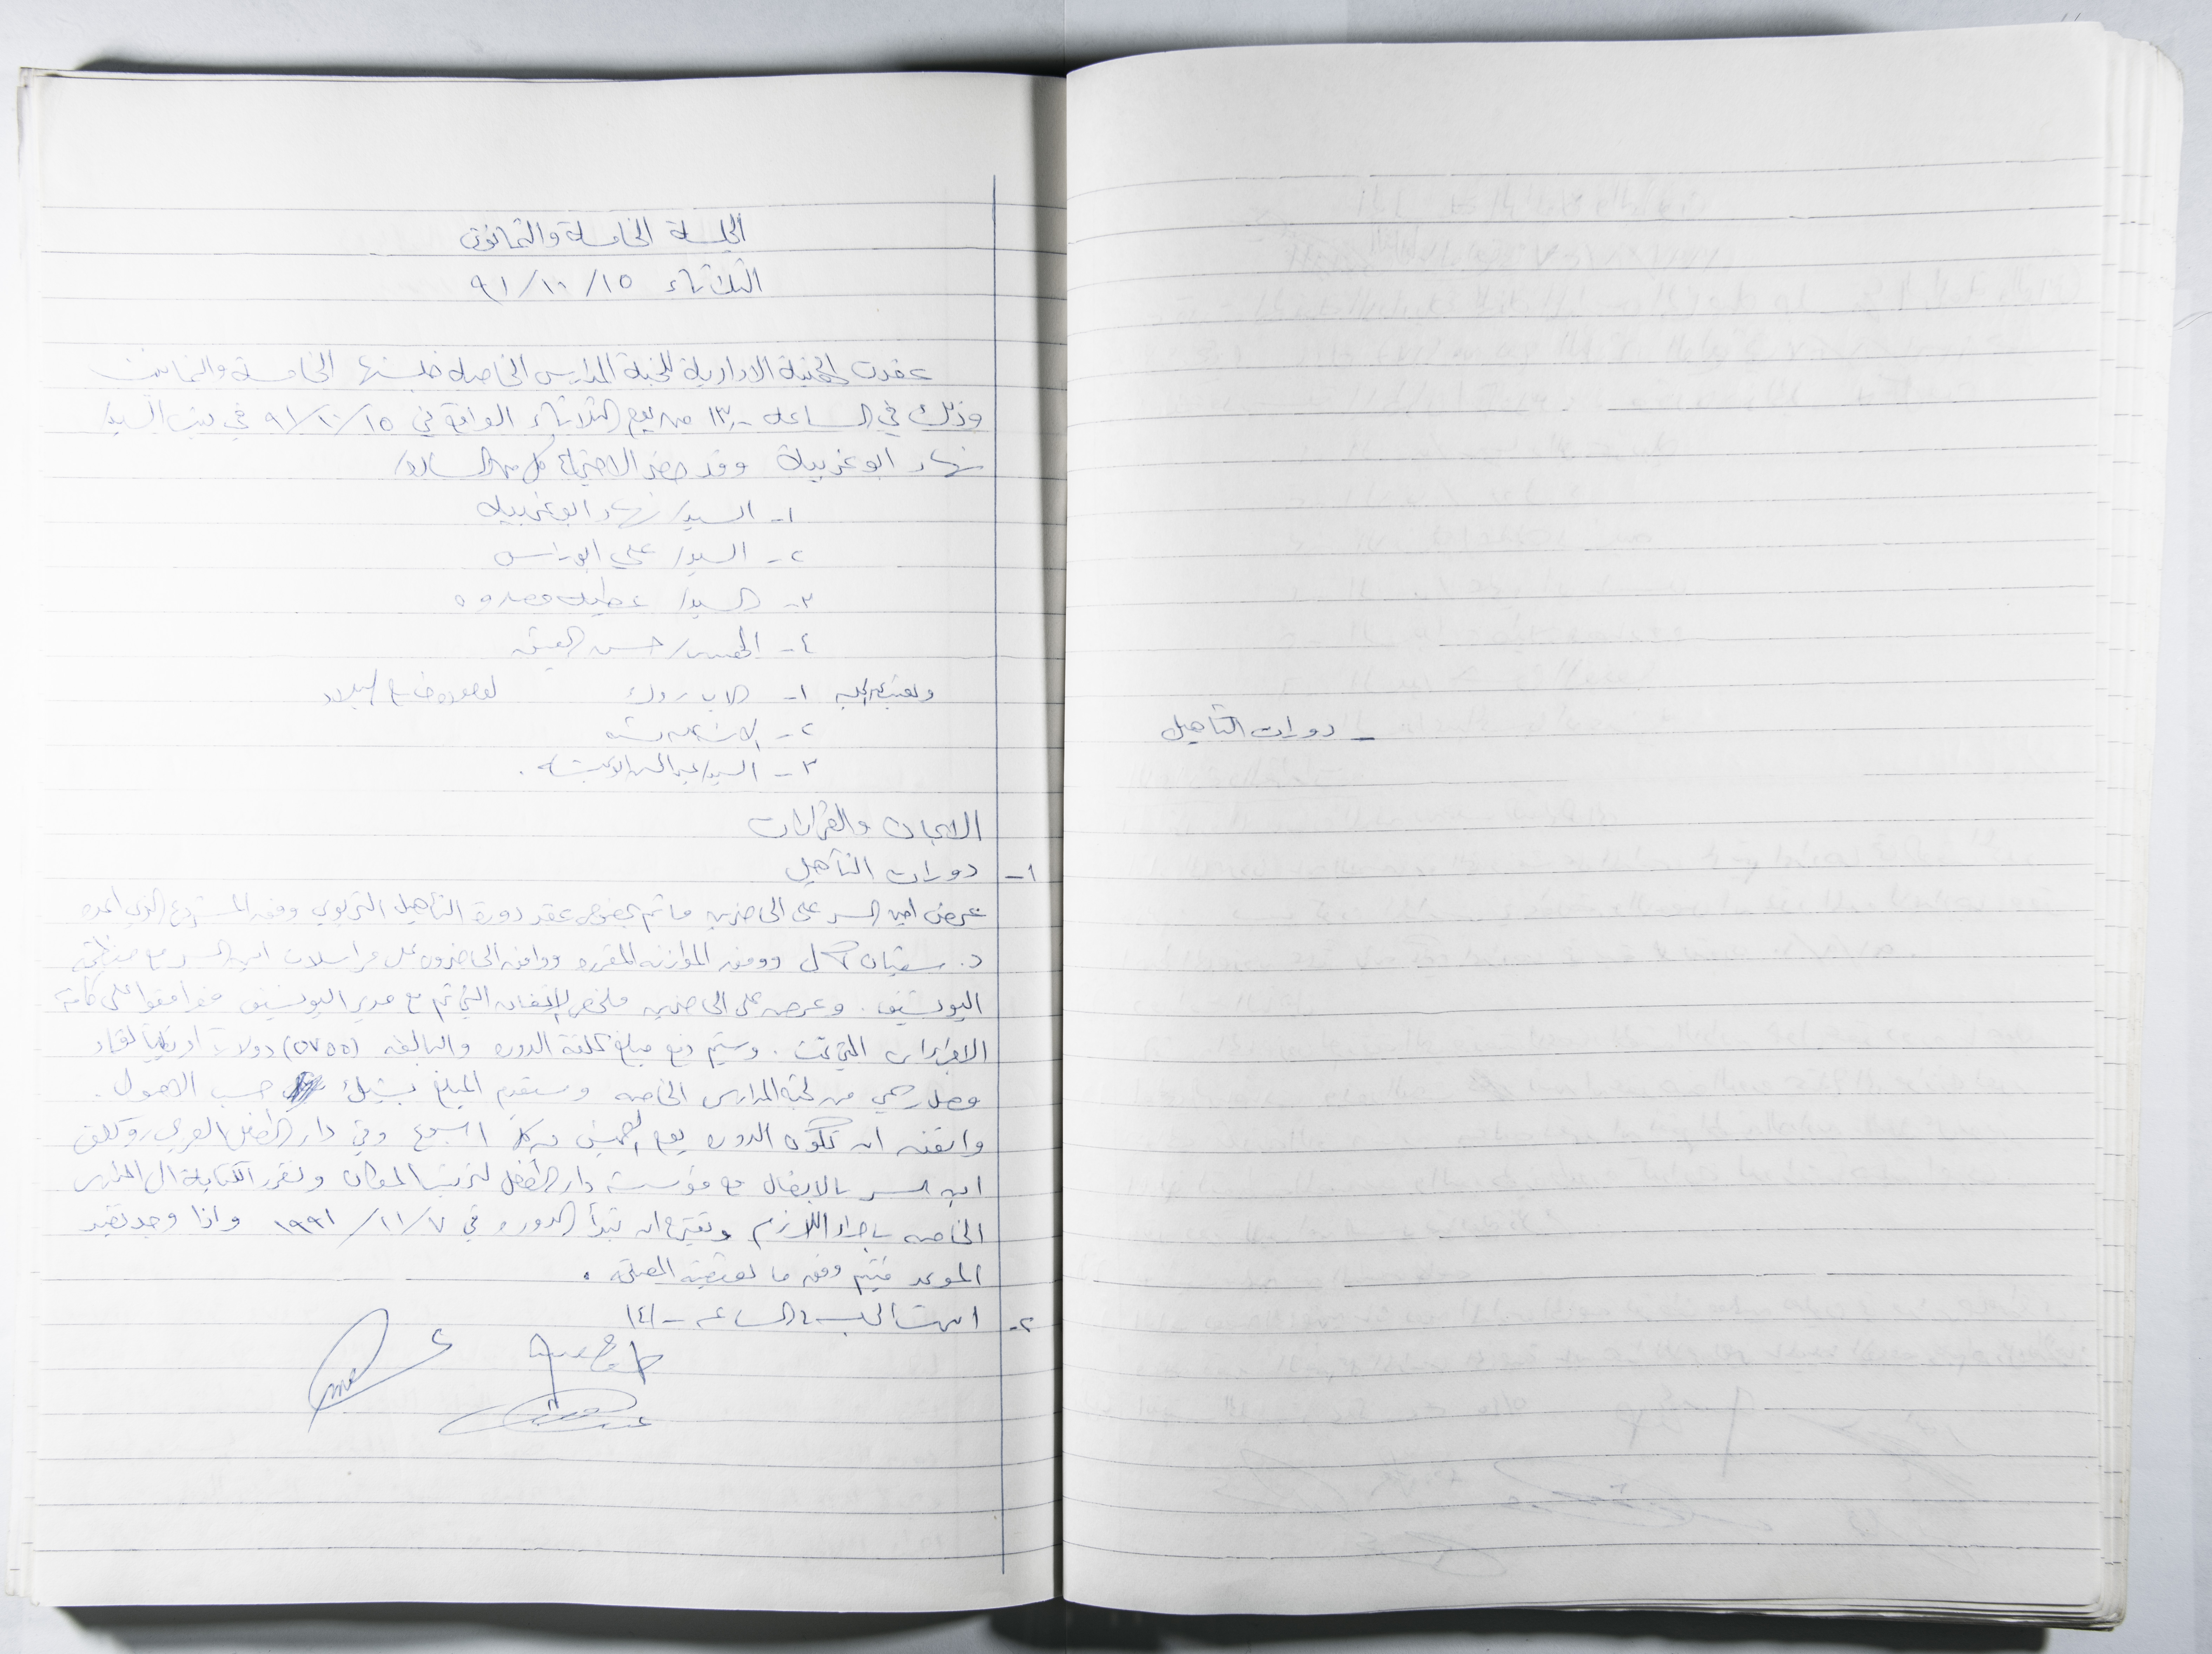 - دورات التأهيل
الجلسة الخامسة والثمانون
الثلاثاء ١٥/١٠/٩١
عقدت الهيئة الادارية للجنة المدارس الخاصة جلستها الخامسة والثمانين
وذلك في الساعه -١٣٫ من يوم الثلاثاء الواقع في ١٥/١٠/٩١ في بيت السيد/
نهاد ابو غربية وقد حضر الاجتماع كل من السادة/
١- السيد/ نهاد ابو غربيه
٢- السيد/ علي ابو راس
٣- السيد/ عطيه مصدوه
٤- المهندس/ حسن القيق
١- الاب روك لوجوده خارج البلاد
٢-
٣- السيد/
الابحاث والقرارات
١- دورات التأهيل
عرض امين السر على الحاضرين ما تم بخصوص عقد دورة التأهيل التربوي وفق المشروع الذي اعده
د. سفيان كمال ووفق الموازنه المقرره ووافق الحاضرون على مراسلات امين السر مع منظمة
اليونسيف. وعرض على الحاضرين ملخص الاتفاق الذي تم مع مدير اليونسيف فوافقوا على كافة
الاجراءات التي تمت. وسيتم دفع مبلغ تكلفة الدوره والبالغه (٥٧٥٥) دولارا امريكيا لقاء
وصل رسمي من لجنة المدارس الخاصه وستقدم المبلغ بشيك حسب الاصول.
واتفق ان تكون الدوره يوم الخميس من كل اسبوع وفي دار الطفل العربي وكلف
امين السر بالاتصال مع مؤسسة دار الطفل لترتيب المكان وتقرر الكتابة الى المدارس
الخاصه باجراء اللازم ونقترح ان تبدأ الدوره في ٧/١١/١٩٩١ واذا وجد تغيير
الموعد فيتم وفق ما تقتضيه المصلحه.
٢- انتهت الجلسه الساعه -١٤٫